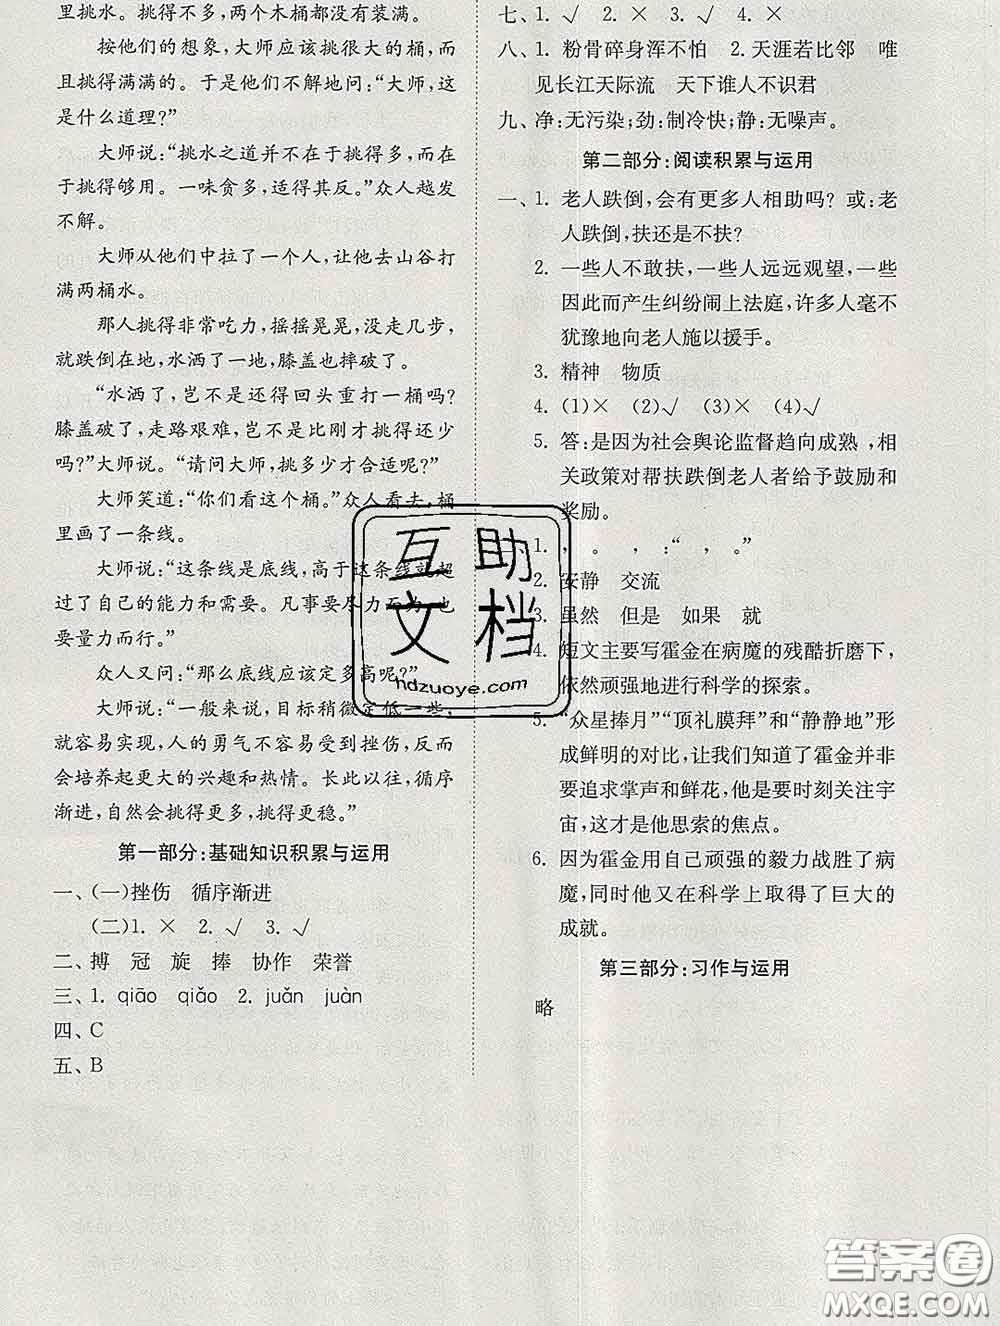 里挑水。挑得不多,两个木桶都没有装满。
按他们的想象,大师应该挑很大的桶,而
且挑得满满的。于是他们不解地问:“大师,这
是什么道理?”
大师说:“挑水之道并不在于挑得多,而在
于挑得够用。一味贪多,适得其反。”众人越发
不解。
大师从他们中拉了一个人,让他去山谷打
满两桶水。
那人挑得非常吃力,摇摇晃晃,没走几步,
就跌倒在地,水洒了一地,膝盖也摔破了。
“水洒了,岂不是还得回头重打一桶吗?
膝盖破了,走路艰难,岂不是比刚才挑得还少
吗?”大师说。“请问大师,挑多少才合适呢?”
大师笑道:“你们看这个桶。”众人看去,桶
里画了一条线。
大师说:“这条线是底线,高于这条线就超
过了自己的能力和需要。凡事要尽力而为,也
要量力而行。”
众人又问:“那么底线应该定多高呢?”
大师说:“一般来说,目标稍微定低一些,
就容易实现,人的勇气不容易受到挫伤,反而
会培养起更大的兴趣和热情。长此以往,循序
渐进,自然会挑得更多,挑得更稳。”
第一部分:基础知识积累与运用
一、(一)挫伤 循序渐进
(二)1. × 2. √ 3. √
二、搏 冠 旋 捧 协作 荣誉
三、1. qiāo qiǎo 2. juǎn juàn
四、C
五、B
七、1. √ 2. × 3. √ 4. ×
八、1. 粉骨碎身浑不怕 2. 天涯若比邻 唯
见长江天际流 天下谁人不识君
九、净:无污染;劲:制冷快;静:无噪声。
第二部分:阅读积累与运用
一、1. 老人跌倒,会有更多人相助吗? 或:老
人跌倒,扶还是不扶?
2. 一些人不敢扶,一些人远远观望,一些
因此而产生纠纷闹上法庭,许多人毫不
犹豫地向老人施以援手。
3. 精神 物质
4. (1)× (2)√ (3)× (4)√
5. 答:是因为社会舆论监督趋向成熟,相
关政策对帮扶跌倒老人者给予鼓励和
奖励。
1. , 。 , :“ , 。”
2. 安静 交流
3. 虽然 但是 如果 就
4. 短文主要写霍金在病魔的残酷折磨下,
依然顽强地进行科学的探索。
5. “众星捧月”“顶礼膜拜”和“静静地”形
成鲜明的对比,让我们知道了霍金并非
要追求掌声和鲜花,他是要时刻关注宇
宙,这才是他思索的焦点。
6. 因为霍金用自己顽强的毅力战胜了病
魔,同时他又在科学上取得了巨大的
成就。
第三部分:习作与运用
略
互助
文档
hdzuoye.com
答案圈
MXQE.COM